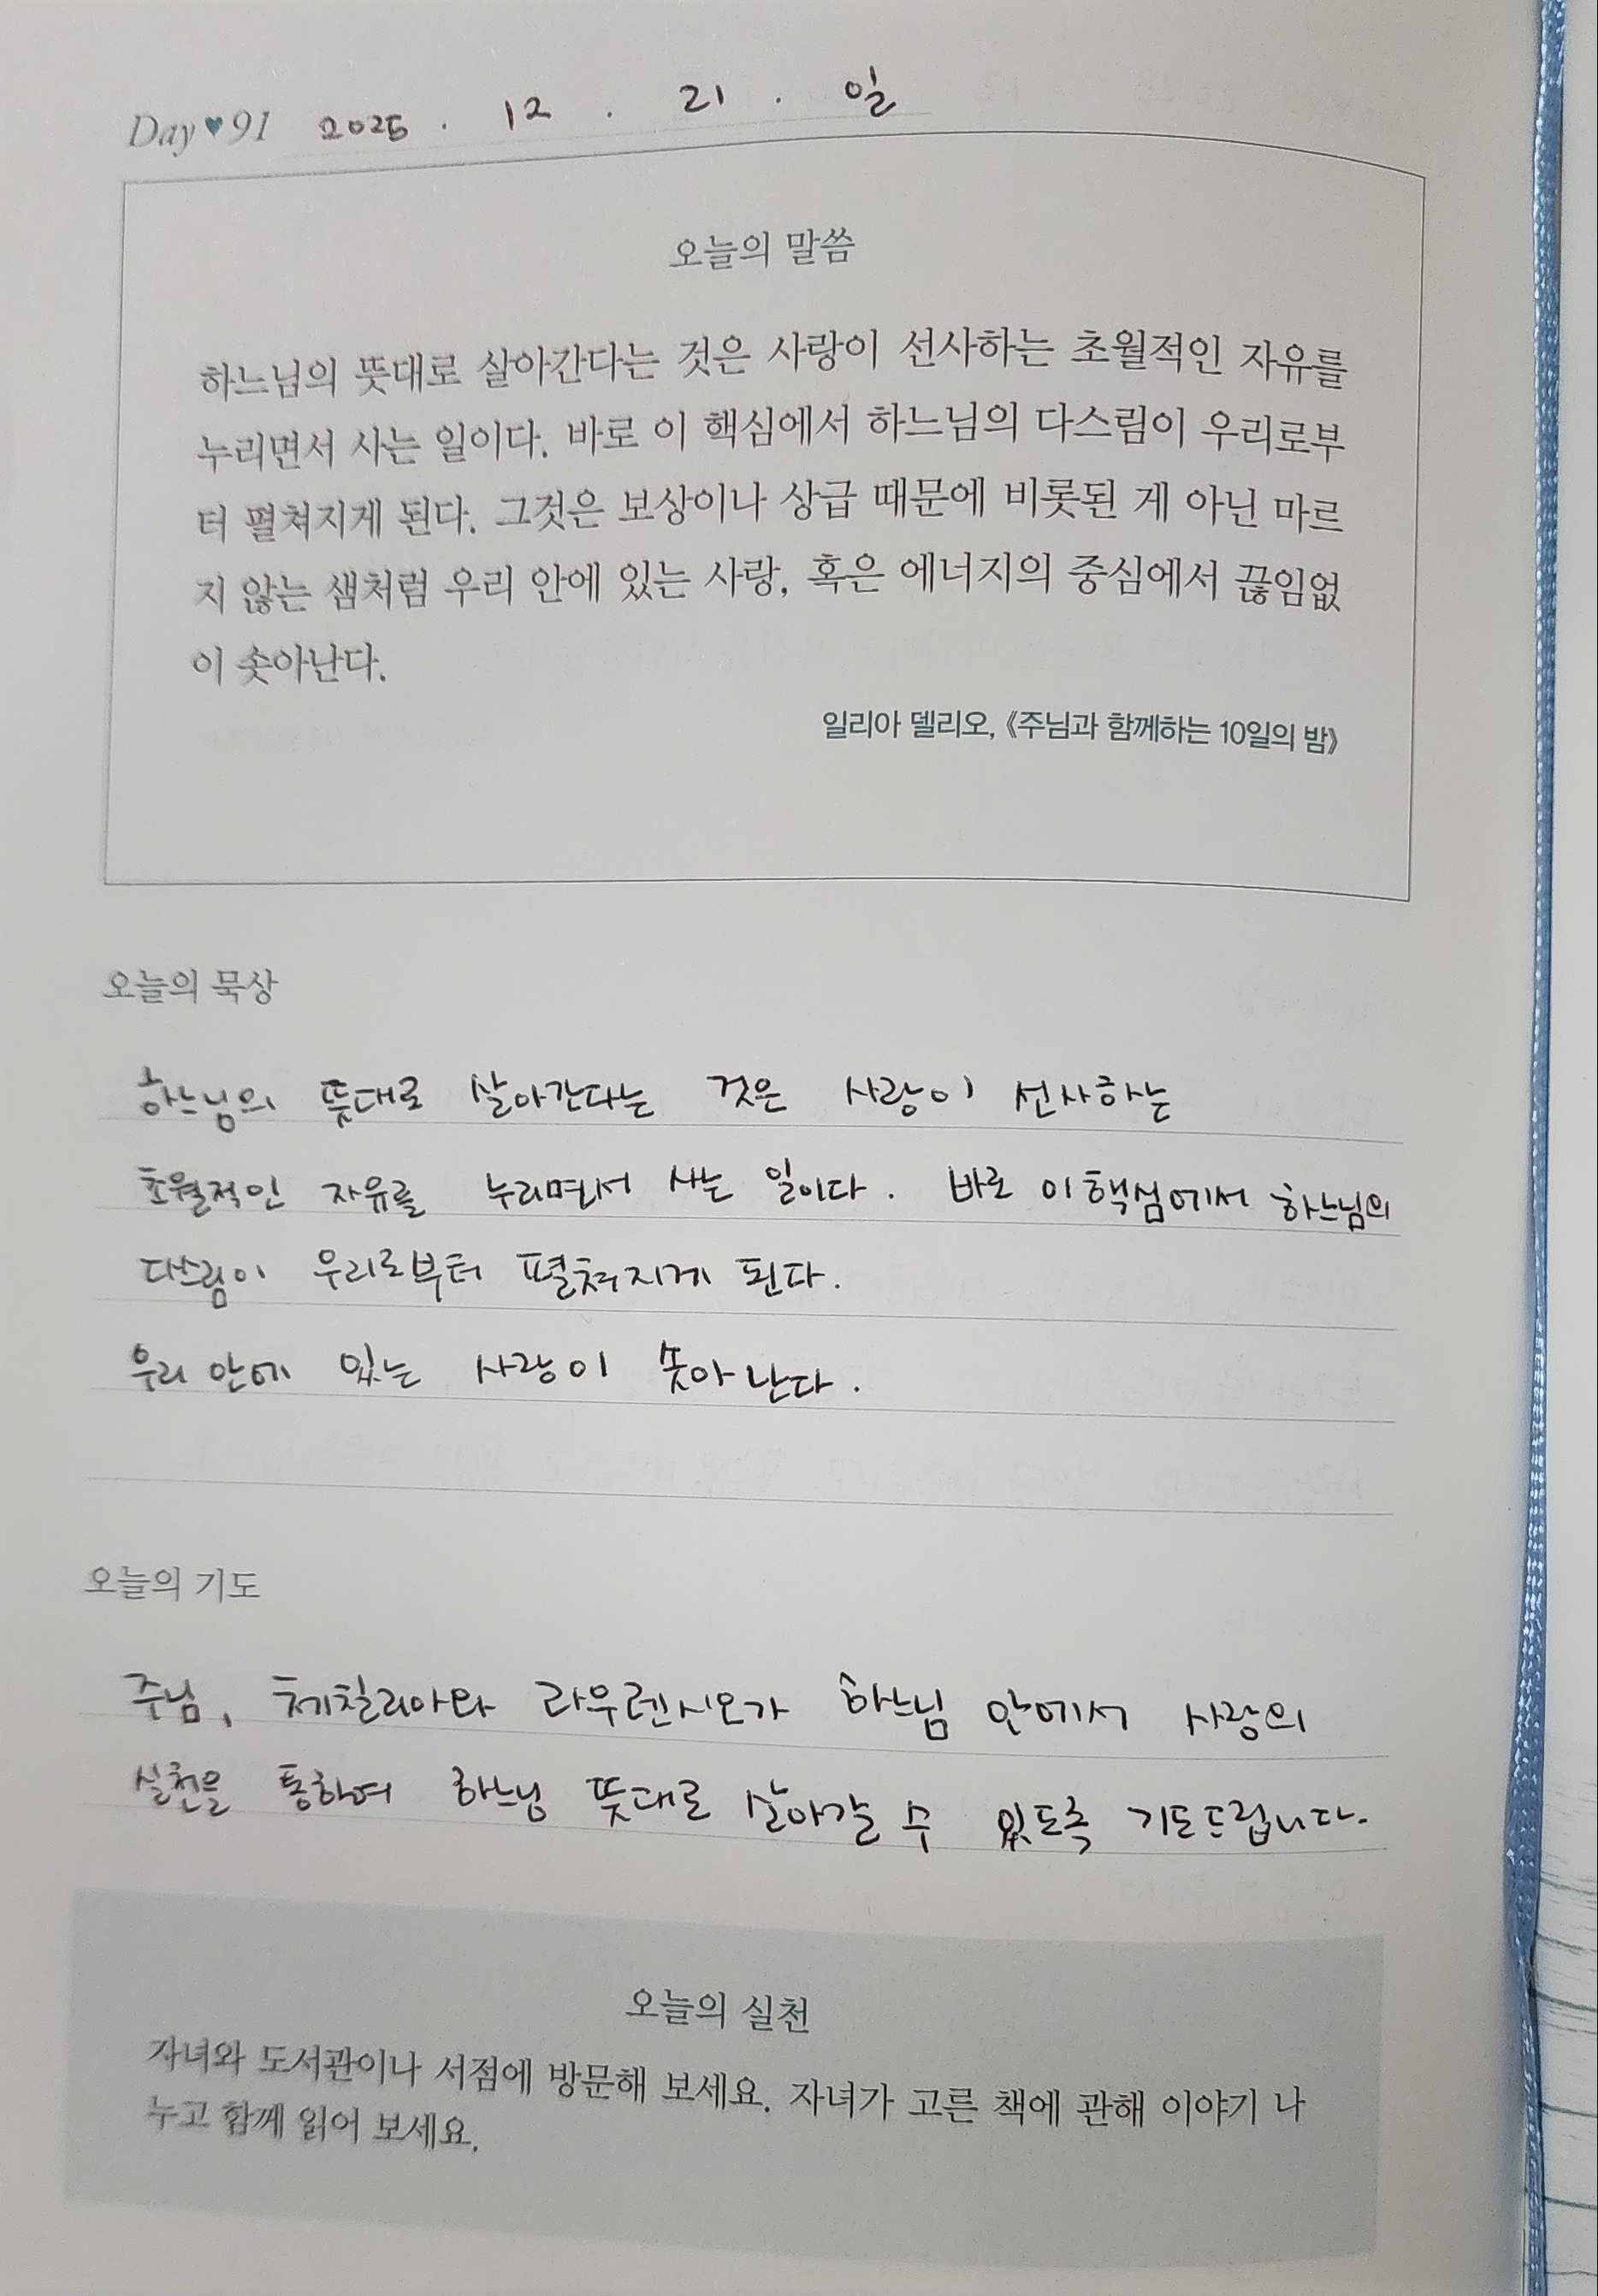 Day♥91 2025 . 12 . 21 . 일
오늘의 말씀
하느님의 뜻대로 살아간다는 것은 사랑이 선사하는 초월적인 자유를
누리면서 사는 일이다. 바로 이 핵심에서 하느님의 다스림이 우리로부
터 펼쳐지게 된다. 그것은 보상이나 상급 때문에 비롯된 게 아닌 마르
지 않는 샘처럼 우리 안에 있는 사랑, 혹은 에너지의 중심에서 끊임없
이 솟아난다.
일리아 델리오, 《주님과 함께하는 10일의 밤》
오늘의 묵상
하느님의 뜻대로 살아간다는 것은 사랑이 선사하는
초월적인 자유를 누리면서 사는 일이다. 바로 이 핵심에서 하느님의
다스림이 우리로부터 펼쳐지게 된다.
우리 안에 있는 사랑이 솟아 난다.
오늘의 기도
주님, 체칠리아와 라우렌시오가 하느님 안에서 사랑의
실천을 통하여 하느님 뜻대로 살아갈 수 있도록 기도드립니다.
오늘의 실천
자녀와 도서관이나 서점에 방문해 보세요. 자녀가 고른 책에 관해 이야기 나
누고 함께 읽어 보세요.